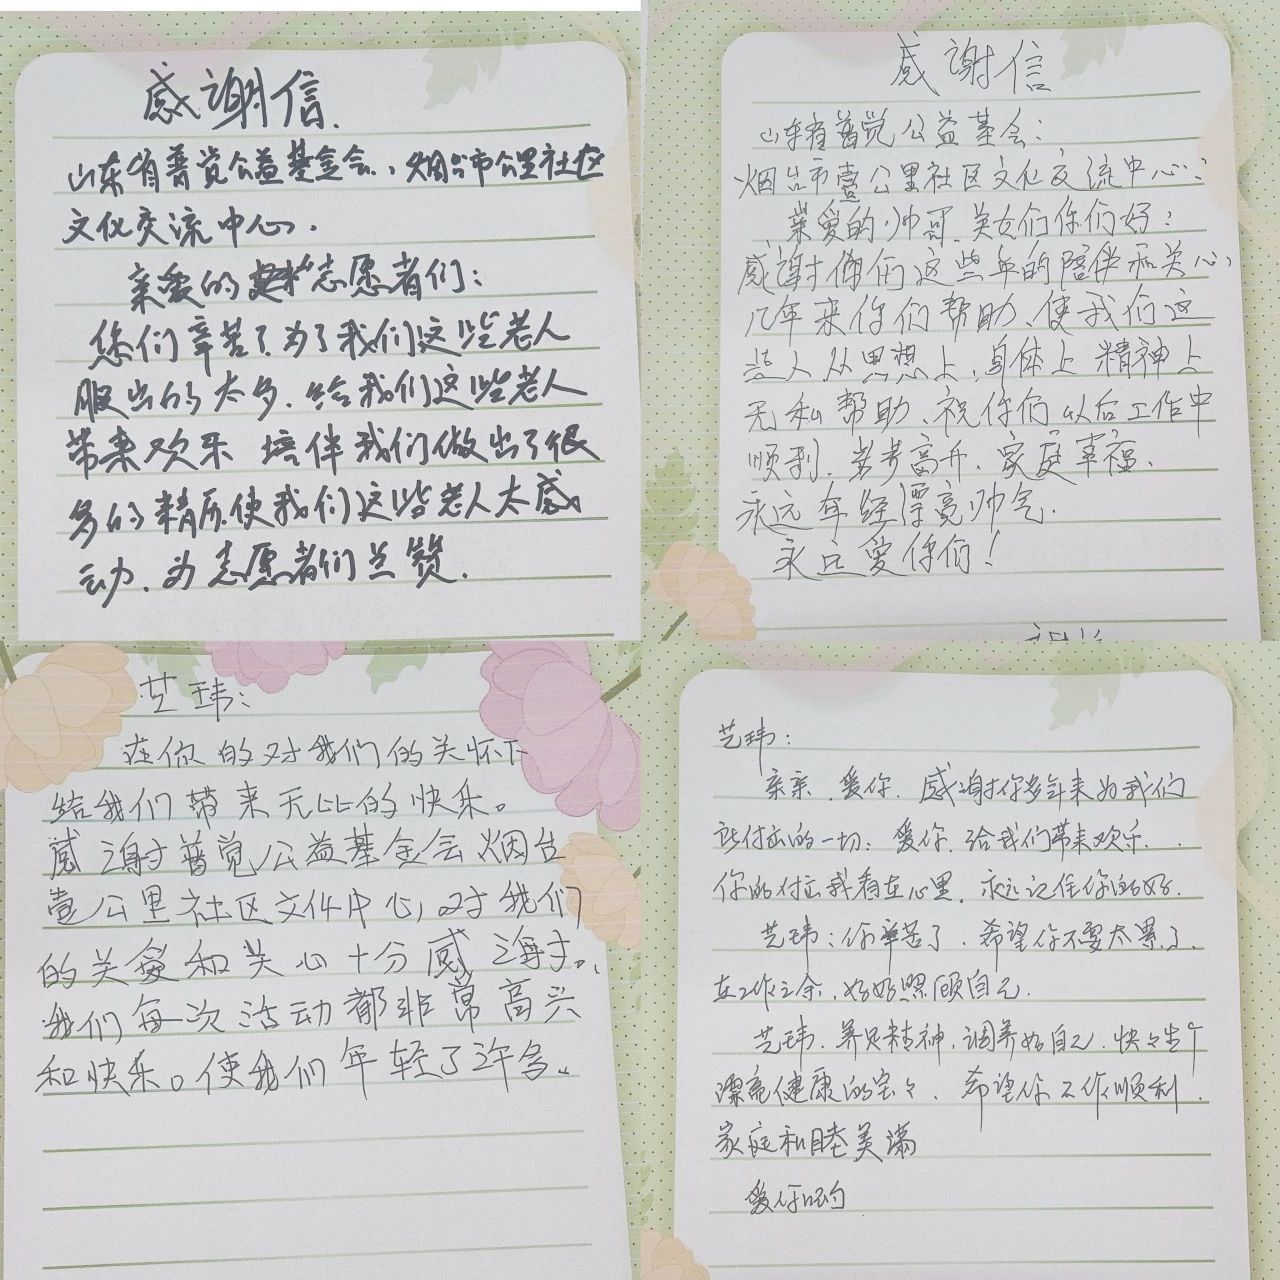 感谢信.
山东省普觉公益基金会、烟台市公里社区
文化交流中心.
亲爱的志愿者们:
您们辛苦了为了我们这些老人
服出的太多.给我们这些老人
带来欢乐 培伴我们做出了很
多的精历.使我们这些老人太感
动.为志愿者们点赞.
感谢信
山东省普觉公益基会:
烟台市壹公里社区文化交流中心:
亲爱的帅哥.美女们你们好:
感谢你们这些年的陪伴和关心
几年来你们帮助、使我们这
些人从思想上.身体上精神上
无私帮助.祝你们以后工作中
顺利.步步高升.家庭幸福.
永远年轻漂亮帅气.
永远爱你们!
艺玮:
在你的对我们的关怀下
给我们带来无比的快乐。
感谢普觉公益基金会烟台
壹公里社区文化中心,对我们
的关爱和关心十分感谢.
我们每次活动都非常高兴
和快乐。使我们年轻了许多.
艺玮:
亲亲.爱你.感谢你多年来为我们
所付出的一切:爱你.给我们带来欢乐.
你的付出我看在心里.永远记住你的好.
艺玮:你辛苦了.希望你不要太累了.
在工作之余.好好照顾自己.
艺玮.养足精神.调养好自己.快々生个
漂亮健康的宝々.希望你工作顺利.
家庭和睦美满
爱你哟